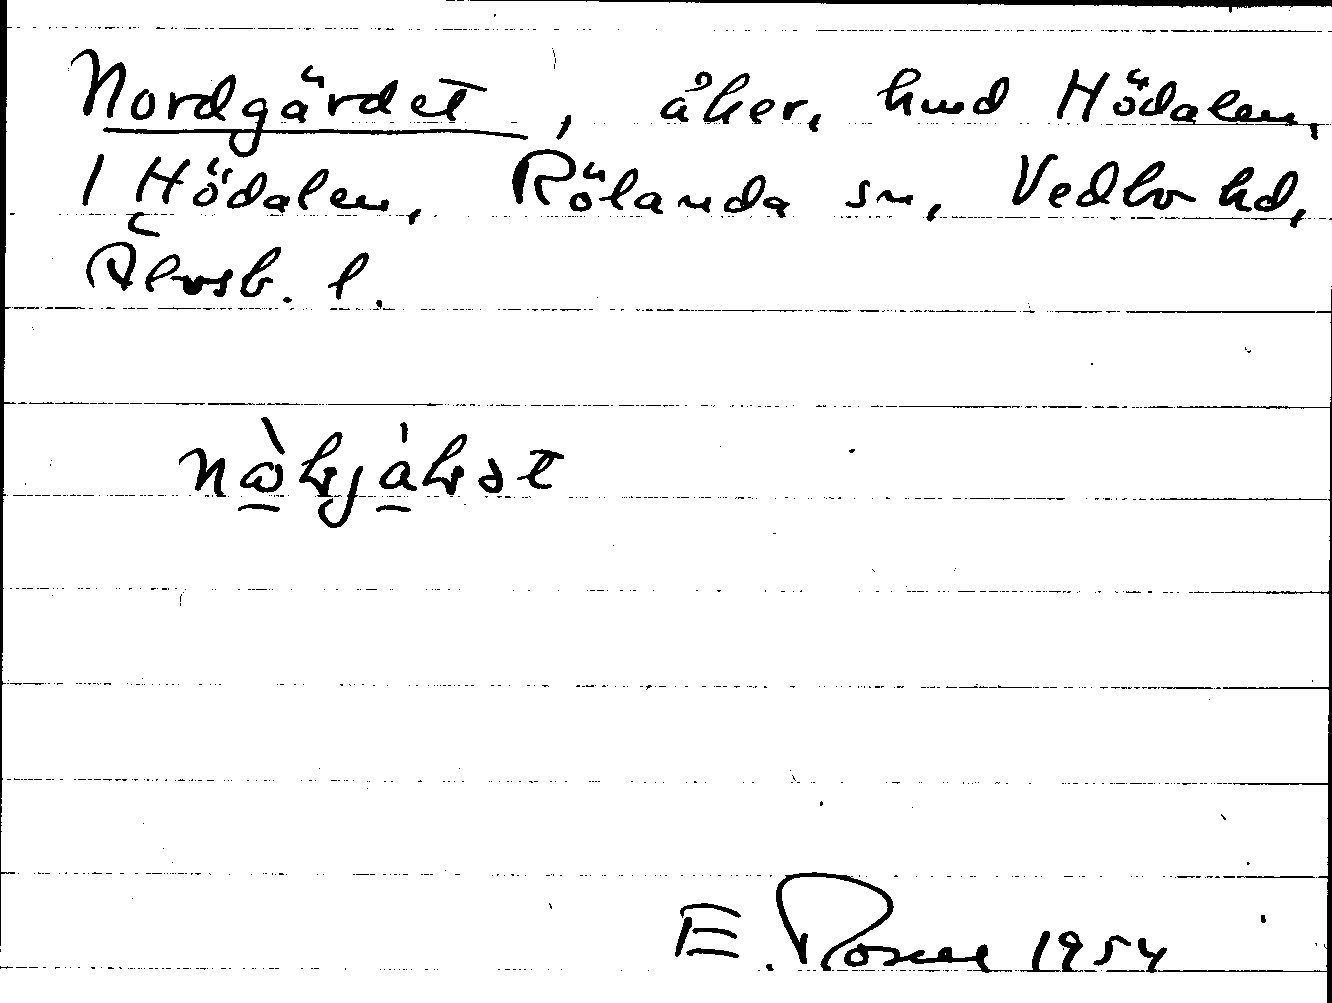 Nordgärdet, åker, hmd Hödalen,
1 Hödalen, Rölanda sn, Vedbo hd,
Älvsb. l.
E. Rosell 1954